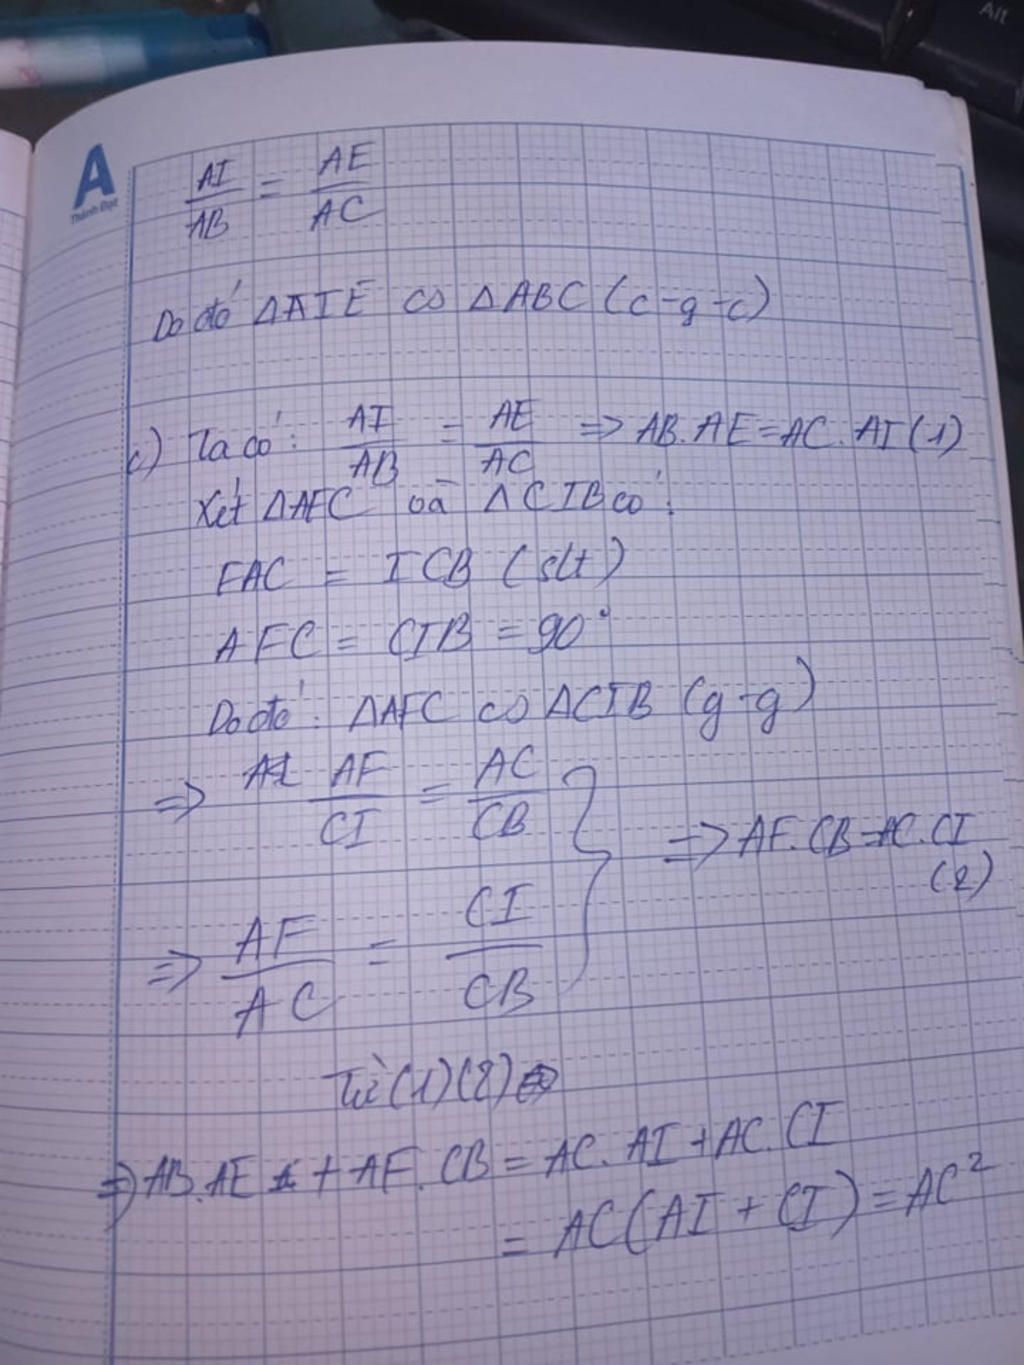 A
Thành Đạt
AI/AB = AE/AC
Do đó ΔAIE ∽ ΔABC (c-g-c)
c) Ta có: AI/AB = AE/AC => AB.AE=AC.AI (1)
Xét ΔAFC và ΔCIB có:
FAC = ICB (slt)
AFC = CIB = 90°
Do đó: ΔAFC ∽ ΔCIB (g-g)
=> AF/CI = AC/CB
=> AF.CB=AC.CI (2)
=> AF/AC = CI/CB
Từ (1)(2)
=> AB.AE + AF.CB = AC.AI + AC.CI
= AC(AI + CI) = AC²
Alt